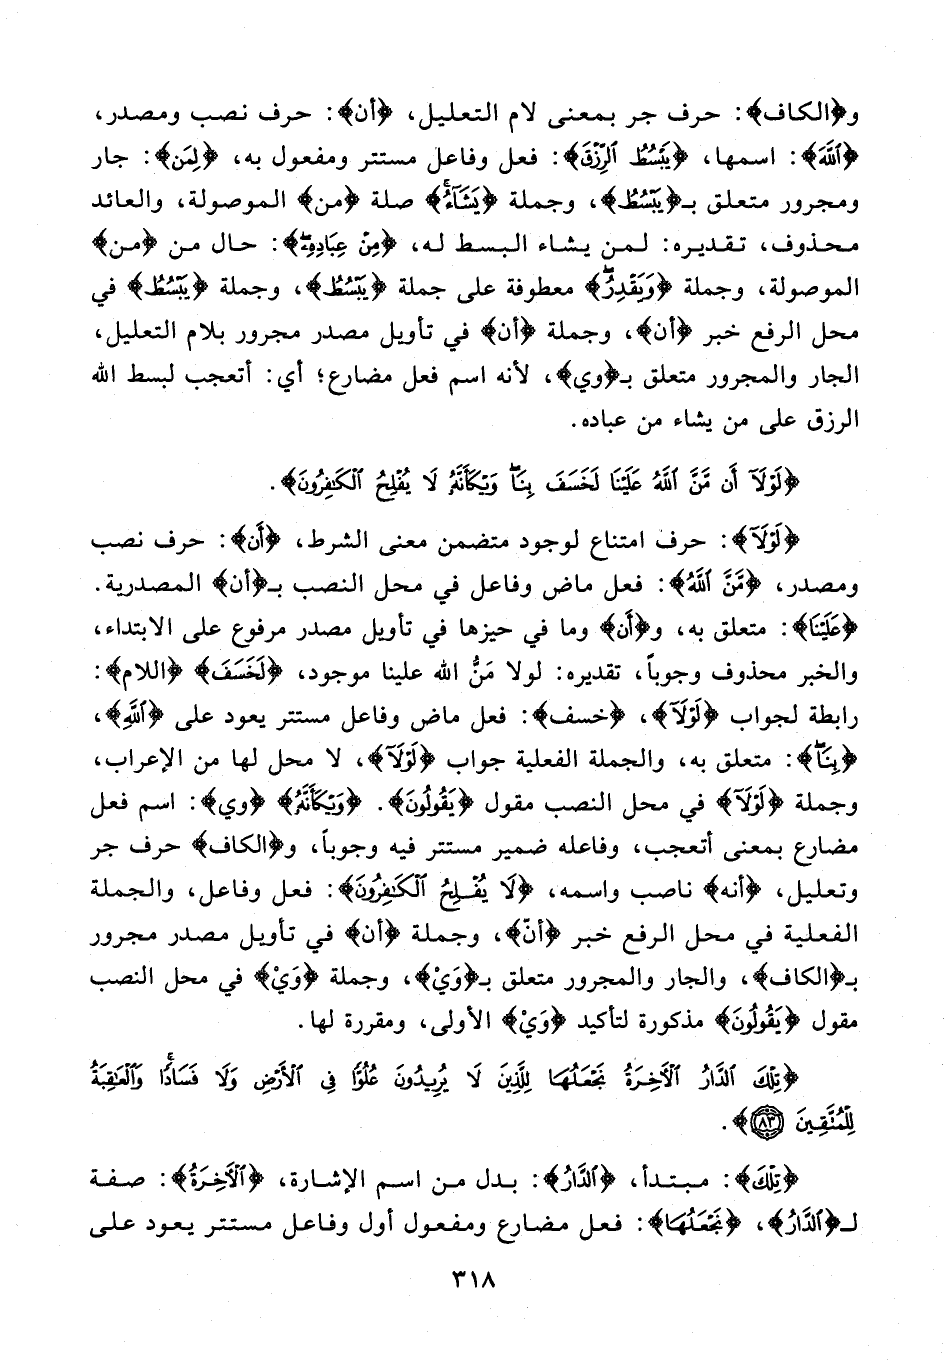 و﴿الكاف﴾: حرف جر بمعنى لام التعليل، ﴿أن﴾: حرف نصب ومصدر،
﴿ٱللَّهَ﴾: اسمها، ﴿يَبْسُطُ ٱلرِّزْقَ﴾: فعل وفاعل مستتر ومفعول به، ﴿لِمَن﴾: جار
ومجرور متعلق بـ﴿يَبْسُطُ﴾، وجملة ﴿يَشَآءُ﴾ صلة ﴿من﴾ الموصولة، والعائد
محذوف، تقديره: لمن يشاء البسط له، ﴿مِنْ عِبَادِهِۦ﴾: حال من ﴿من﴾
الموصولة، وجملة ﴿وَيَقْدِرُ﴾ معطوفة على جملة ﴿يَبْسُطُ﴾، وجملة ﴿يَبْسُطُ﴾ في
محل الرفع خبر ﴿أن﴾، وجملة ﴿أن﴾ في تأويل مصدر مجرور بلام التعليل،
الجار والمجرور متعلق بـ﴿وي﴾، لأنه اسم فعل مضارع؛ أي: أتعجب لبسط الله
الرزق على من يشاء من عباده.
﴿لَوْلَآ أَن مَّنَّ ٱللَّهُ عَلَيْنَا لَخَسَفَ بِنَا ۖ وَيْكَأَنَّهُۥ لَا يُفْلِحُ ٱلْكَٰفِرُونَ﴾.
﴿لَوْلَآ﴾: حرف امتناع لوجود متضمن معنى الشرط، ﴿أَن﴾: حرف نصب
ومصدر، ﴿مَّنَّ ٱللَّهُ﴾: فعل ماض وفاعل في محل النصب بـ﴿أن﴾ المصدرية.
﴿عَلَيْنَا﴾: متعلق به، و﴿أَن﴾ وما في حيزها في تأويل مصدر مرفوع على الابتداء،
والخبر محذوف وجوباً، تقديره: لولا مَنُّ الله علينا موجود، ﴿لَخَسَفَ﴾ ﴿اللام﴾:
رابطة لجواب ﴿لَوْلَآ﴾، ﴿خسف﴾: فعل ماض وفاعل مستتر يعود على ﴿ٱللَّهِ﴾،
﴿بِنَا ۖ﴾: متعلق به، والجملة الفعلية جواب ﴿لَوْلَآ﴾، لا محل لها من الإعراب،
وجملة ﴿لَوْلَآ﴾ في محل النصب مقول ﴿يَقُولُونَ﴾. ﴿وَيْكَأَنَّهُۥ﴾ ﴿وي﴾: اسم فعل
مضارع بمعنى أتعجب، وفاعله ضمير مستتر فيه وجوباً، و﴿الكاف﴾ حرف جر
وتعليل، ﴿أنه﴾ ناصب واسمه، ﴿لَا يُفْلِحُ ٱلْكَٰفِرُونَ﴾: فعل وفاعل، والجملة
الفعلية في محل الرفع خبر ﴿أنّ﴾، وجملة ﴿أن﴾ في تأويل مصدر مجرور
بـ﴿الكاف﴾، والجار والمجرور متعلق بـ﴿وَيْ﴾، وجملة ﴿وَيْ﴾ في محل النصب
مقول ﴿يَقُولُونَ﴾ مذكورة لتأكيد ﴿وَيْ﴾ الأولى، ومقررة لها.
﴿تِلْكَ ٱلدَّارُ ٱلْأَخِرَةُ نَجْعَلُهَا لِلَّذِينَ لَا يُرِيدُونَ عُلُوًّا فِى ٱلْأَرْضِ وَلَا فَسَادًا ۚ وَٱلْعَٰقِبَةُ
لِلْمُتَّقِينَ ٨٣﴾.
﴿تِلْكَ﴾: مبتدأ، ﴿ٱلدَّارُ﴾: بدل من اسم الإشارة، ﴿ٱلْأَخِرَةُ﴾: صفة
لـ﴿ٱلدَّارُ﴾، ﴿نَجْعَلُهَا﴾: فعل مضارع ومفعول أول وفاعل مستتر يعود على
٣١٨